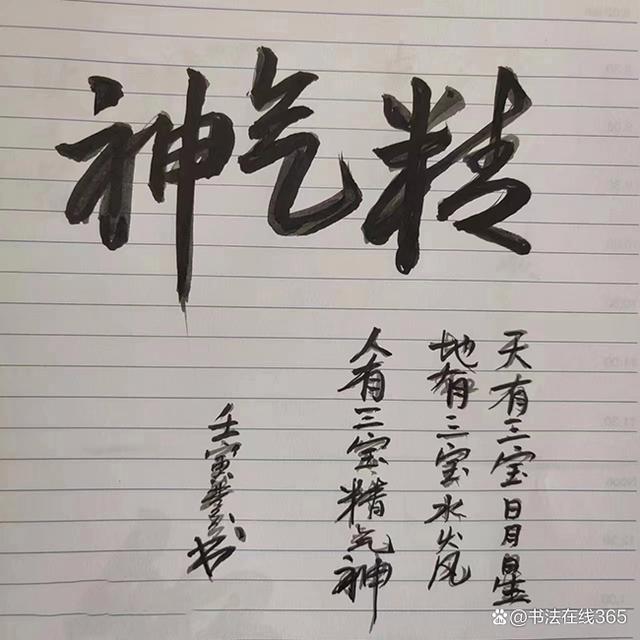 精气神
天有三宝日月星
地有三宝水火风
人有三宝精气神
壬寅
书
@书法在线365